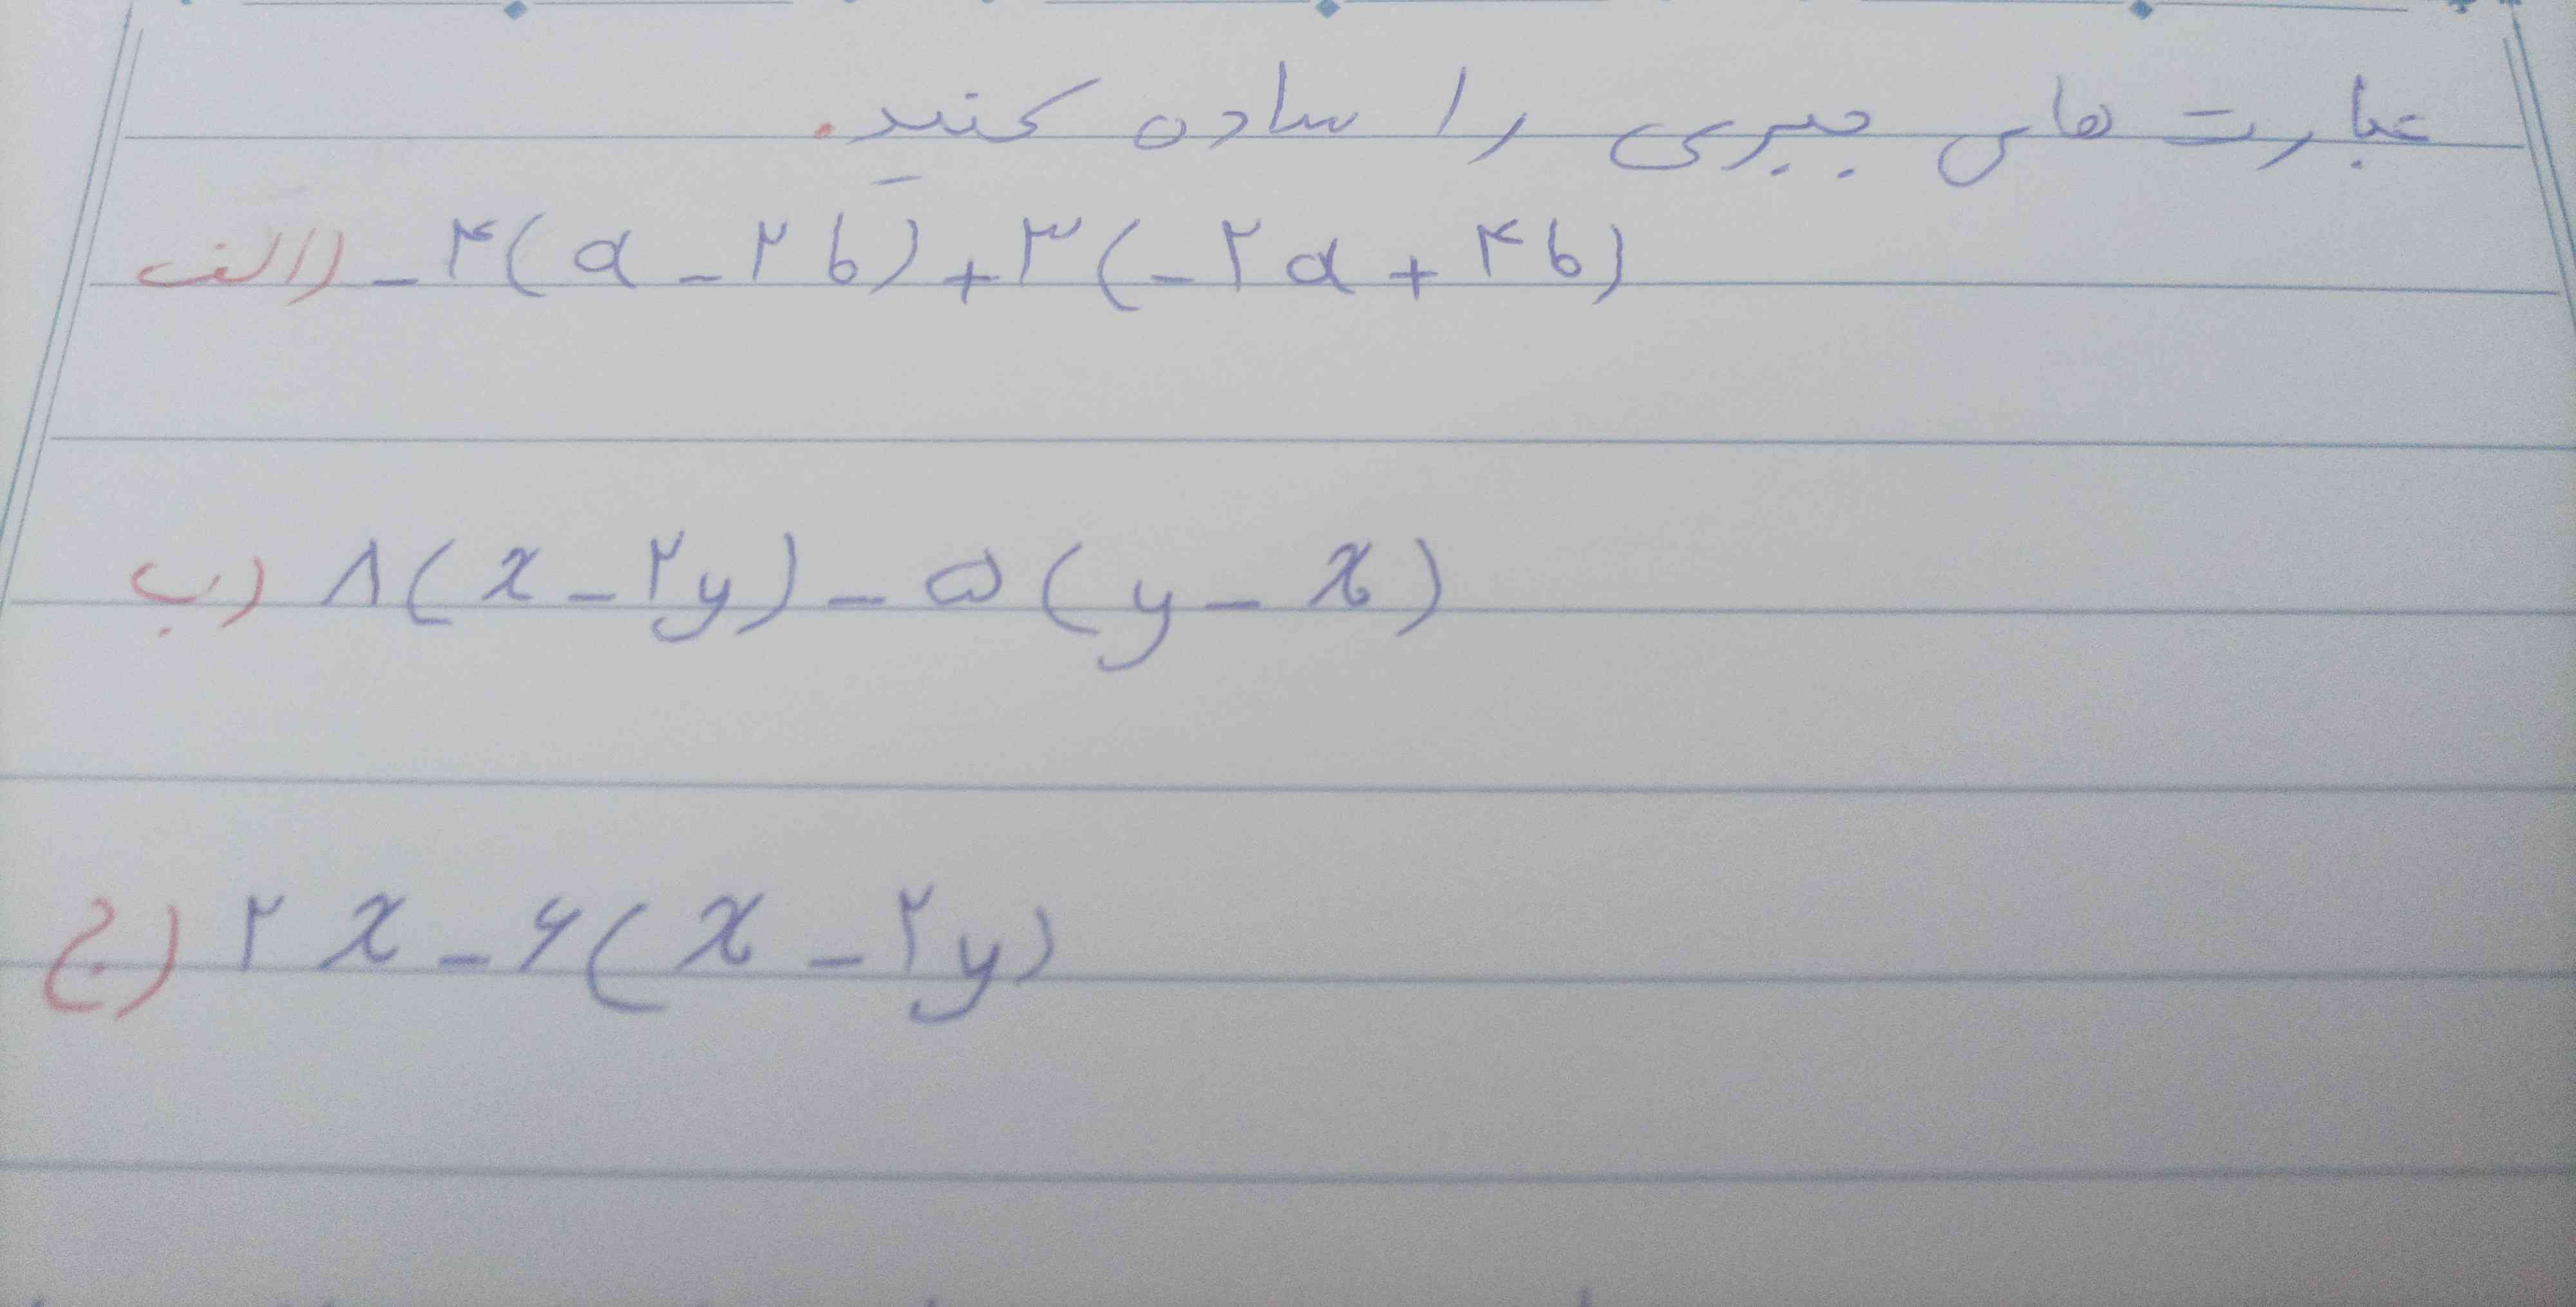 عبارت های جبری را ساده کنید.
الف) -۴(a-۲b)+۳(-۲a+۴b)
ب) ۸(x-۲y)-۵(y-x)
ج) ۲x-۶(x-۲y)